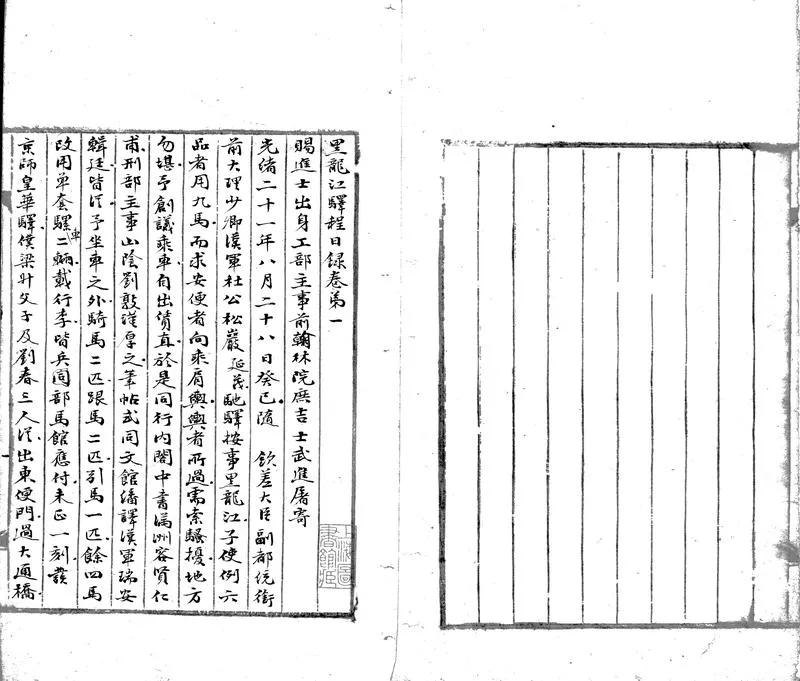 黑龍江驛程日録卷第一
賜進士出身工部主事前翰林院庶吉士武進屠寄
光緒二十一年八月二十八日癸巳隨 欽差大臣副都統銜
前大理少卿漢軍杜公松巖延茂馳驛按事黑龍江子使例六
品者用九馬而求安便者向乘肩輿輿者所過需索騷擾地方
勿堪予創議乘車自出僨直於是同行內閣中書滿洲容賢仁
甫刑部主事山陰劉敦謹厚之筆帖式同文館繙譯漢軍瑞安
輯廷皆從予坐車之外騎馬二匹跟馬二匹引馬一匹餘四馬
改用單套騾車二輛載行李皆兵部馬館應付未正一刻發
京師皇華驛僕梁升父子及劉春三人從出東便門過大通橋
上海圖書館藏